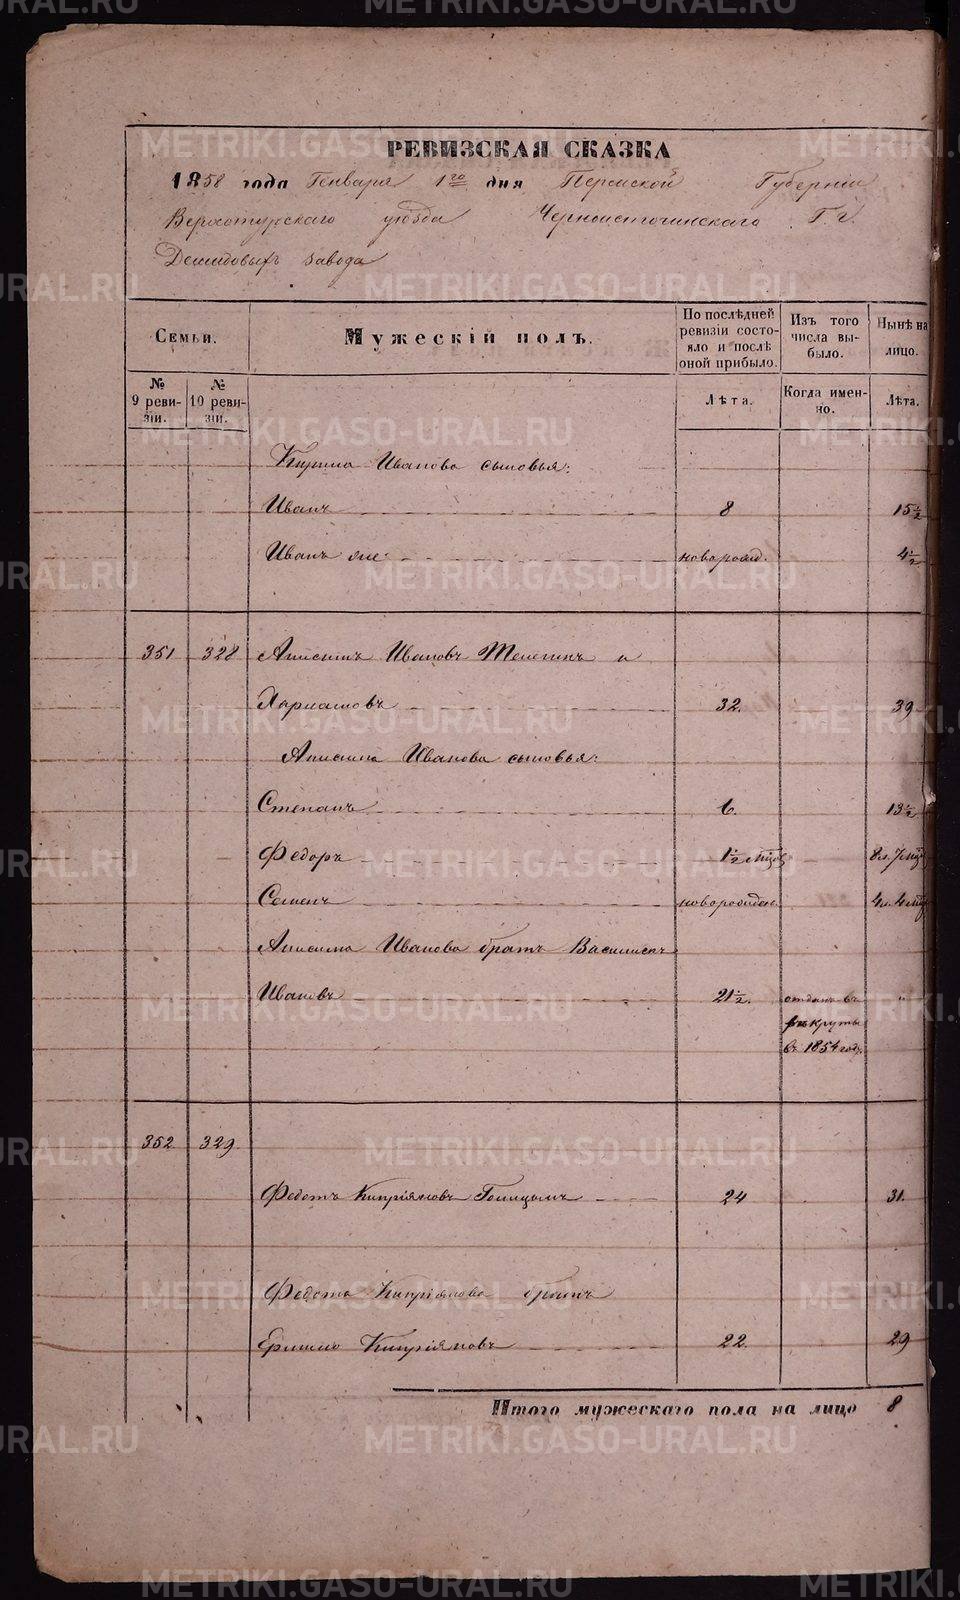 РЕВИЗСКАЯ СКАЗКА
1858 года Генваря 1го дня Пермской Губернiи
Верхотурскаго уѣзда Черноисточинскаго Г.г.
Демидовыхъ завода
Семьи.
Мужескiй полъ.
По послѣдней ревизiи состояло и послѣ оной прибыло.
Изъ того числа выбыло.
Нынѣ на лицо.
№ 9 ревизiи.
№ 10 ревизiи.
Лѣта.
Когда именно.
Лѣта.
Ивановa сыновья:
Иванъ 8 15½
Иванъ же новорожд. 4½
351 328 Анисимъ Ивановъ Телегинъ и
Харламовъ 32. 39
Анисима Иванова сыновья:
Степанъ 6. 13½
Федоръ 1½ мѣсяц 8л. 7мѣ
Семенъ новорожден. 4л. 4мѣ
Анисима Иванова братъ Василискъ
Ивановъ 21½. отданъ въ "
рекруты
въ 1854 году.
352 329
Федотъ Кипрiяновъ 24 31.
Федота Кипрiянова братъ
Ермилъ Кипрiяновъ 22. 29
Итого мужескаго пола на лицо 8
METRIKI.GASO-URAL.RU